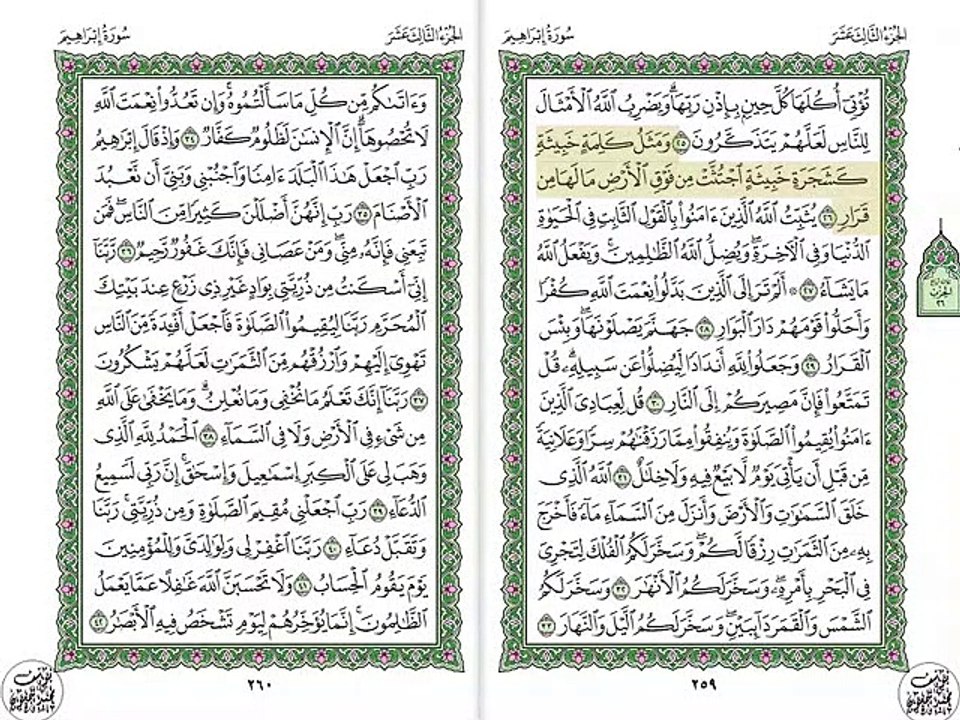 الجزء الثالث عشر
سورة إبراهيم
تُؤْتِىٓ أُكُلَهَا كُلَّ حِينٍۭ بِإِذْنِ رَبِّهَا ۗ وَيَضْرِبُ ٱللَّهُ ٱلْأَمْثَالَ
لِلنَّاسِ لَعَلَّهُمْ يَتَذَكَّرُونَ ٢٥ وَمَثَلُ كَلِمَةٍ خَبِيثَةٍ
كَشَجَرَةٍ خَبِيثَةٍ ٱجْتُثَّتْ مِن فَوْقِ ٱلْأَرْضِ مَا لَهَا مِن
قَرَارٍ ٢٦ يُثَبِّتُ ٱللَّهُ ٱلَّذِينَ ءَامَنُوا۟ بِٱلْقَوْلِ ٱلثَّابِتِ فِى ٱلْحَيَوٰةِ
ٱلدُّنْيَا وَفِى ٱلْـَٔاخِرَةِ ۖ وَيُضِلُّ ٱللَّهُ ٱلظَّـٰلِمِينَ ۚ وَيَفْعَلُ ٱللَّهُ
مَا يَشَآءُ ٢٧ ۞ أَلَمْ تَرَ إِلَى ٱلَّذِينَ بَدَّلُوا۟ نِعْمَتَ ٱللَّهِ كُفْرًا
وَأَحَلُّوا۟ قَوْمَهُمْ دَارَ ٱلْبَوَارِ ٢٨ جَهَنَّمَ يَصْلَوْنَهَا ۖ وَبِئْسَ
ٱلْقَرَارُ ٢٩ وَجَعَلُوا۟ لِلَّهِ أَندَادًا لِّيُضِلُّوا۟ عَن سَبِيلِهِۦ ۗ قُلْ
تَمَتَّعُوا۟ فَإِنَّ مَصِيرَكُمْ إِلَى ٱلنَّارِ ٣٠ قُل لِّعِبَادِىَ ٱلَّذِينَ
ءَامَنُوا۟ يُقِيمُوا۟ ٱلصَّلَوٰةَ وَيُنفِقُوا۟ مِمَّا رَزَقْنَـٰهُمْ سِرًّا وَعَلَانِيَةً
مِّن قَبْلِ أَن يَأْتِىَ يَوْمٌ لَّا بَيْعٌ فِيهِ وَلَا خِلَـٰلٌ ٣١ ٱللَّهُ ٱلَّذِى
خَلَقَ ٱلسَّمَـٰوَٰتِ وَٱلْأَرْضَ وَأَنزَلَ مِنَ ٱلسَّمَآءِ مَآءً فَأَخْرَجَ
بِهِۦ مِنَ ٱلثَّمَرَٰتِ رِزْقًا لَّكُمْ ۖ وَسَخَّرَ لَكُمُ ٱلْفُلْكَ لِتَجْرِىَ
فِى ٱلْبَحْرِ بِأَمْرِهِۦ ۖ وَسَخَّرَ لَكُمُ ٱلْأَنْهَـٰرَ ٣٢ وَسَخَّرَ لَكُمُ
ٱلشَّمْسَ وَٱلْقَمَرَ دَآئِبَيْنِ ۖ وَسَخَّرَ لَكُمُ ٱلَّيْلَ وَٱلنَّهَارَ ٣٣
٢٥٩
الحزب
٢٦
الجزء الثالث عشر
سورة إبراهيم
وَءَاتَىٰكُم مِّن كُلِّ مَا سَأَلْتُمُوهُ ۚ وَإِن تَعُدُّوا۟ نِعْمَتَ ٱللَّهِ
لَا تُحْصُوهَآ ۗ إِنَّ ٱلْإِنسَـٰنَ لَظَلُومٌ كَفَّارٌ ٣٤ وَإِذْ قَالَ إِبْرَٰهِيمُ
رَبِّ ٱجْعَلْ هَـٰذَا ٱلْبَلَدَ ءَامِنًا وَٱجْنُبْنِى وَبَنِىَّ أَن نَّعْبُدَ
ٱلْأَصْنَامَ ٣٥ رَبِّ إِنَّهُنَّ أَضْلَلْنَ كَثِيرًا مِّنَ ٱلنَّاسِ ۖ فَمَن
تَبِعَنِى فَإِنَّهُۥ مِنِّى ۖ وَمَنْ عَصَانِى فَإِنَّكَ غَفُورٌ رَّحِيمٌ ٣٦ رَّبَّنَآ
إِنِّىٓ أَسْكَنتُ مِن ذُرِّيَّتِى بِوَادٍ غَيْرِ ذِى زَرْعٍ عِندَ بَيْتِكَ
ٱلْمُحَرَّمِ رَبَّنَا لِيُقِيمُوا۟ ٱلصَّلَوٰةَ فَٱجْعَلْ أَفْـِٔدَةً مِّنَ ٱلنَّاسِ
تَهْوِىٓ إِلَيْهِمْ وَٱرْزُقْهُم مِّنَ ٱلثَّمَرَٰتِ لَعَلَّهُمْ يَشْكُرُونَ
٣٧ رَبَّنَآ إِنَّكَ تَعْلَمُ مَا نُخْفِى وَمَا نُعْلِنُ ۗ وَمَا يَخْفَىٰ عَلَى ٱللَّهِ
مِن شَىْءٍ فِى ٱلْأَرْضِ وَلَا فِى ٱلسَّمَآءِ ٣٨ ٱلْحَمْدُ لِلَّهِ ٱلَّذِى
وَهَبَ لِى عَلَى ٱلْكِبَرِ إِسْمَـٰعِيلَ وَإِسْحَـٰقَ ۚ إِنَّ رَبِّى لَسَمِيعُ
ٱلدُّعَآءِ ٣٩ رَبِّ ٱجْعَلْنِى مُقِيمَ ٱلصَّلَوٰةِ وَمِن ذُرِّيَّتِى ۚ رَبَّنَا
وَتَقَبَّلْ دُعَآءِ ٤٠ رَبَّنَا ٱغْفِرْ لِى وَلِوَٰلِدَىَّ وَلِلْمُؤْمِنِينَ
يَوْمَ يَقُومُ ٱلْحِسَابُ ٤١ وَلَا تَحْسَبَنَّ ٱللَّهَ غَـٰفِلًا عَمَّا يَعْمَلُ
ٱلظَّـٰلِمُونَ ۚ إِنَّمَا يُؤَخِّرُهُمْ لِيَوْمٍ تَشْخَصُ فِيهِ ٱلْأَبْصَـٰرُ ٤٢
٢٦٠